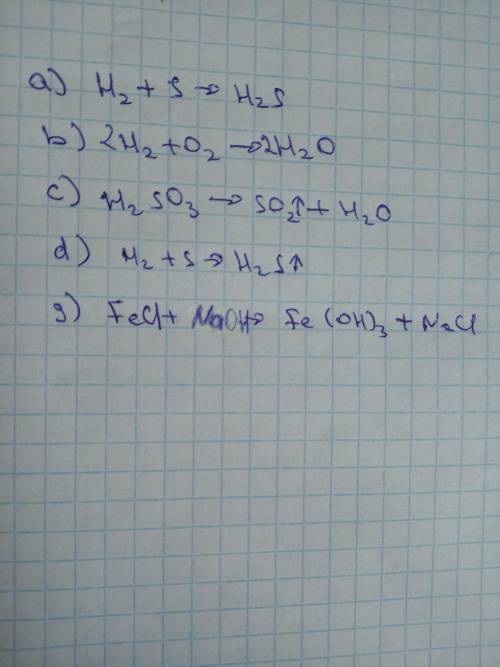 a) H₂ + S → H₂S
b) 2H₂ + O₂ → 2H₂O
c) H₂SO₃ → SO₂↑ + H₂O
d) H₂ + S → H₂S↑
g) FeCl + NaOH → Fe(OH)₃ + NaCl